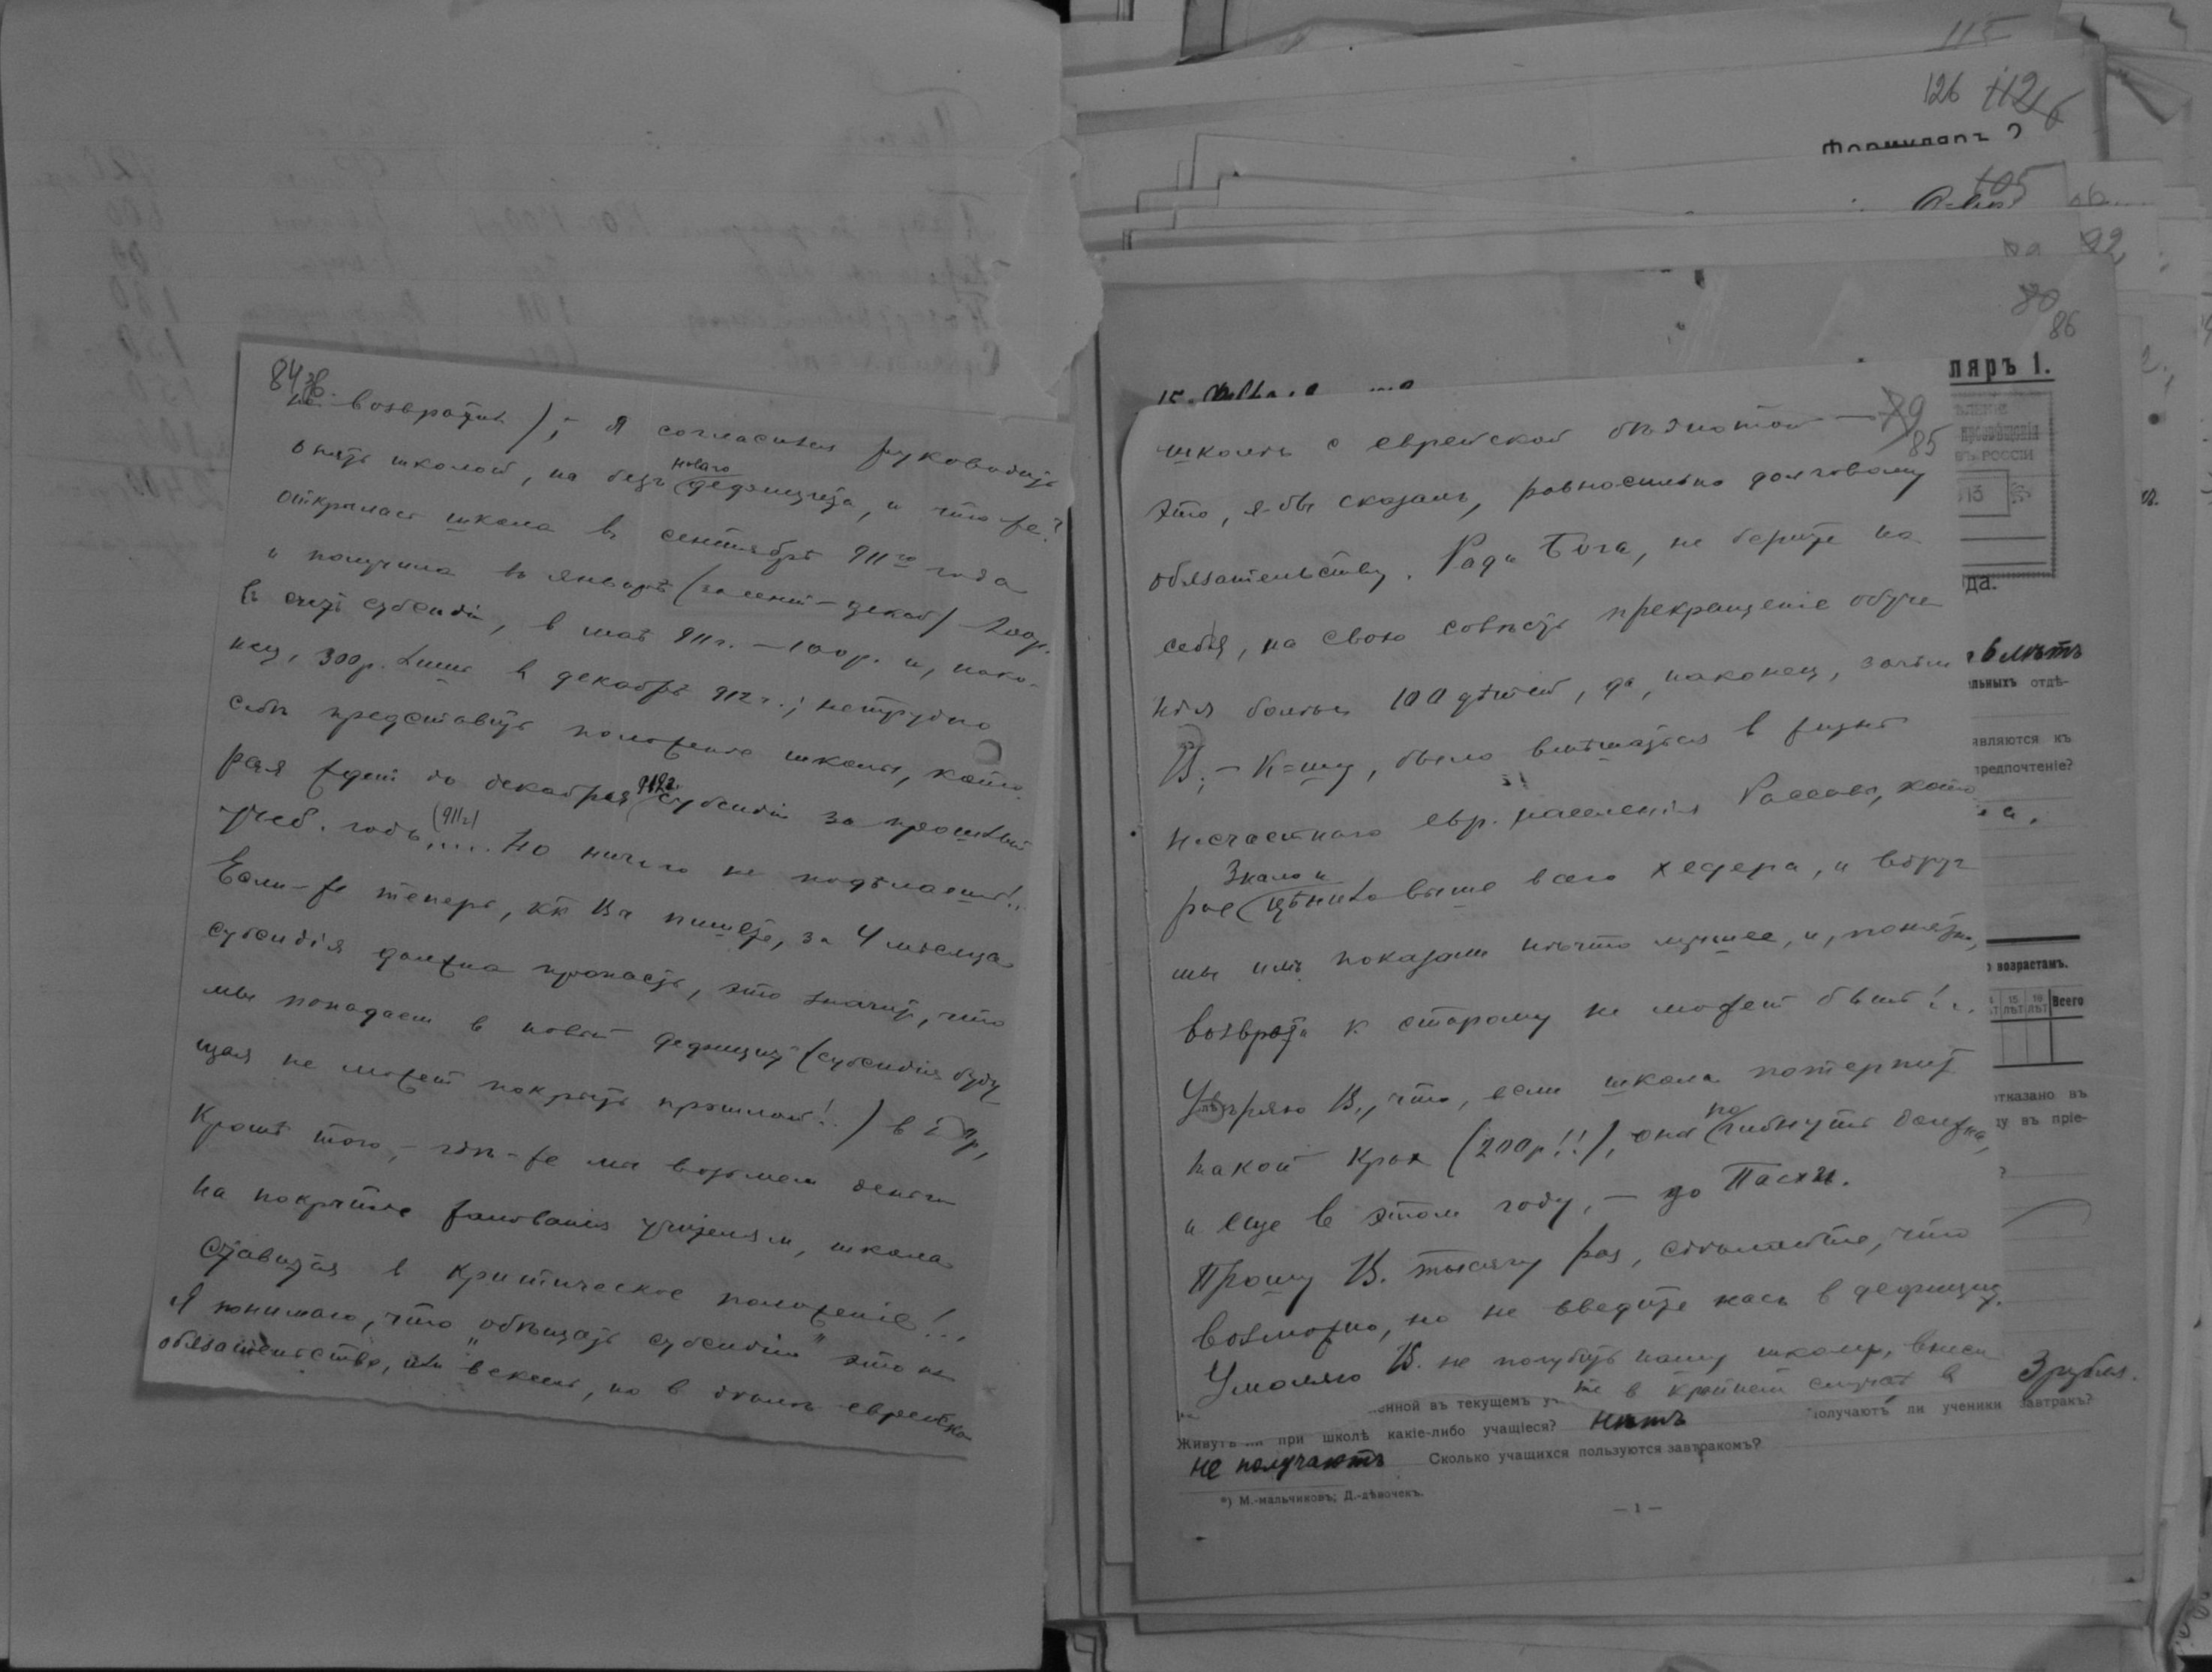 84 об.
не возвратил), – я согласился руководить
опять школой, на безъ новаго дефицита, и что-же?
открылась школа в сентябрѣ 911го года
и получила в январѣ (за сент – декаб) – 200р.
в счет субсидіи, в маѣ 911г. – 100р. и, нако-
нец, 300р. лишь в декабрѣ 912 г.; нетрудно
себѣ представить положеніе школы, кото-
рая ждет до декабря 912г. субсидіи за прошлый
учеб. годъ (911г) .... Но ничего не подѣлаешь!..
Если-же теперь, кк Вы пишете, за 4 мѣсяца
субсидія должна пропасть, это значит, что
мы попадаем в новый дефицит (субсидія буду
щая не может покрыть прошлой!..) в
Кромѣ того, – гдѣ-же мы возьмем деньги
на покрытіе жалованія учителям, школа
ставится в критическое положеніе!...
Я понимаю, что „обѣщать субсидію" это не
обязательство, или вексель, но в дѣлѣ еврейско
115
126 112 б
Формуляръ 2
105
92
80
86
ляръ 1.
79
85
школѣ с еврейской бѣднотой –
это, я-бы сказалъ, равносильно долговому
обязательству. Ради Бога, не берите на
себя, на свою совѣсть прекращеніе обуче
нія болѣе 100 дѣтей, да, наконец, зачѣм
В. – К=ту, было вмѣшаться в жизнь
несчастнаго евр. населенія Рассавы, кото
рое знало и цѣнило выше всего хедера, и вдруг
мы имъ показали нѣчто лучшее, и, понятно,
возврата к старому не может быть!..
Увѣряю В., что, если школа потерпит
такой крах (200р!!), она погибнуть должна,
и еще в этом году, – до Пасхи.
Прошу В. тысячу раз, сдѣлайте, что
возможно, но не введите насъ в дефицит.
Умоляю В. не погубить нашу школу, внеси
те в крайнем случаѣ в
3 рубля.
ВЛЕНІЕ
просвѣщенія
ВЪ РОССІИ
13
да.
6 лѣтъ
льныхъ отдѣ-
являются къ
предпочтеніе?
а.
возрастамъ.
15 ЛѢТ 16 ЛѢТ Всего
отказано въ
ду въ пріе-
нной въ текущемъ у
Живутъ ли при школѣ какіе-либо учащіеся? нѣтъ получаютъ ли ученики завтракъ?
не получаютъ Сколько учащихся пользуются завтракомъ?
*) М.-мальчиковъ; Д.-дѣвочекъ.
— 1 —